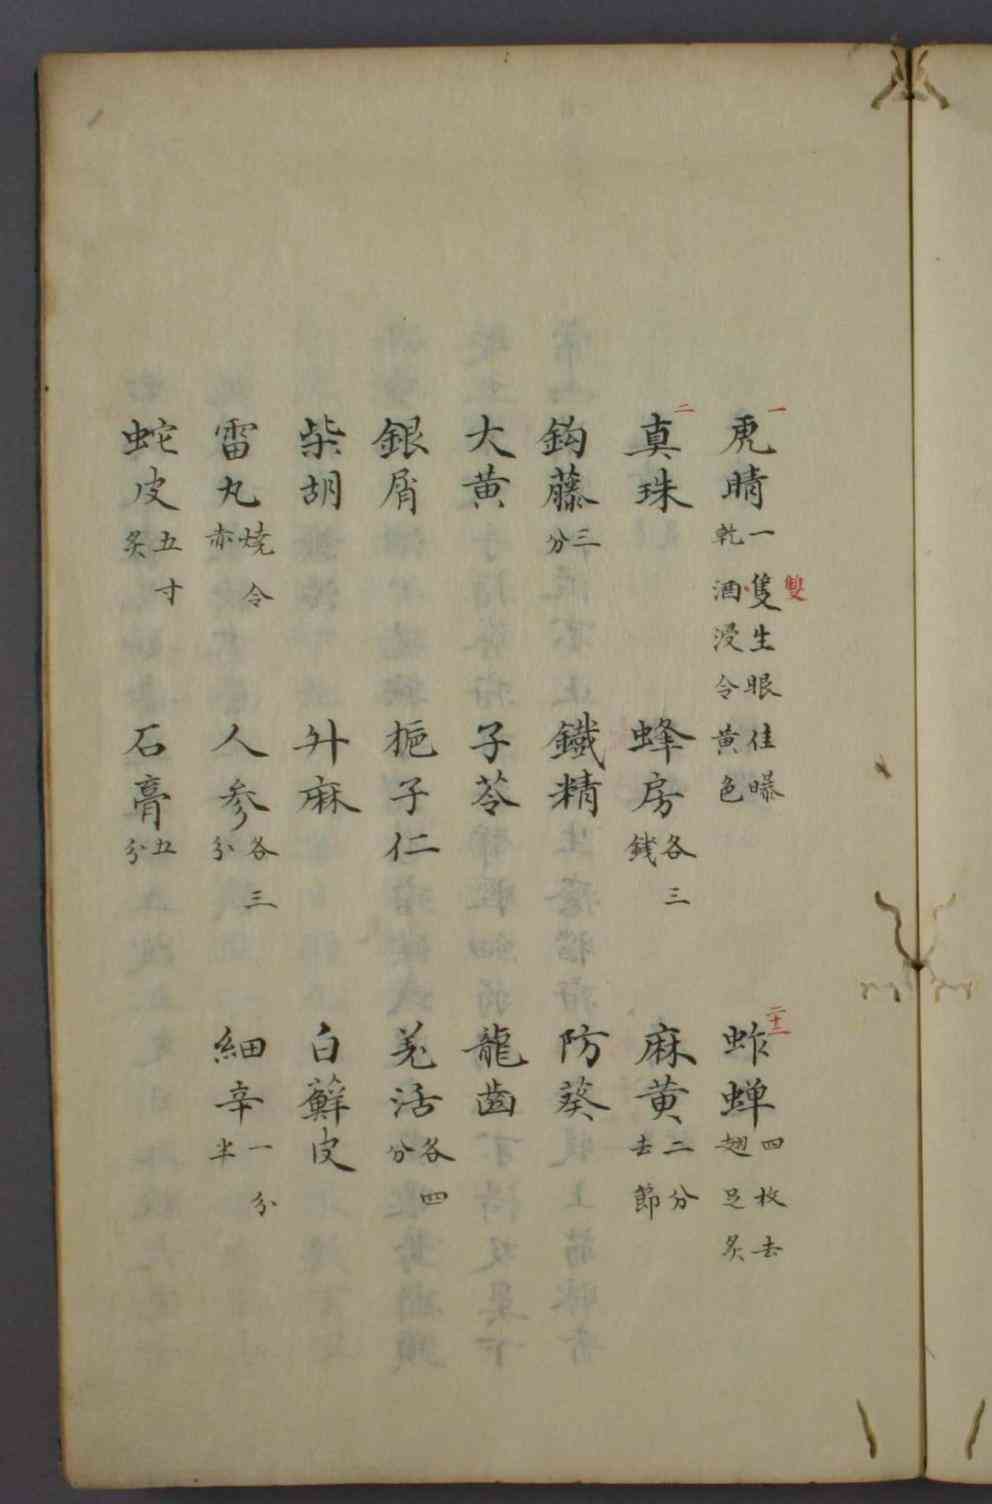 虎睛一隻生眼佳曝乾酒浸令黄色 蚱蟬四枚去翅足炙
真珠 蜂房各三錢 麻黄二分去節
鈎藤三分 鐵精 防葵
大黄 子芩 龍齒
銀屑 梔子仁 羌活各四分
柴胡 升麻 白蘚皮
雷丸燒令赤 人参各三分 細辛一分半
蛇皮五寸炙 石膏五分
一
雙
二